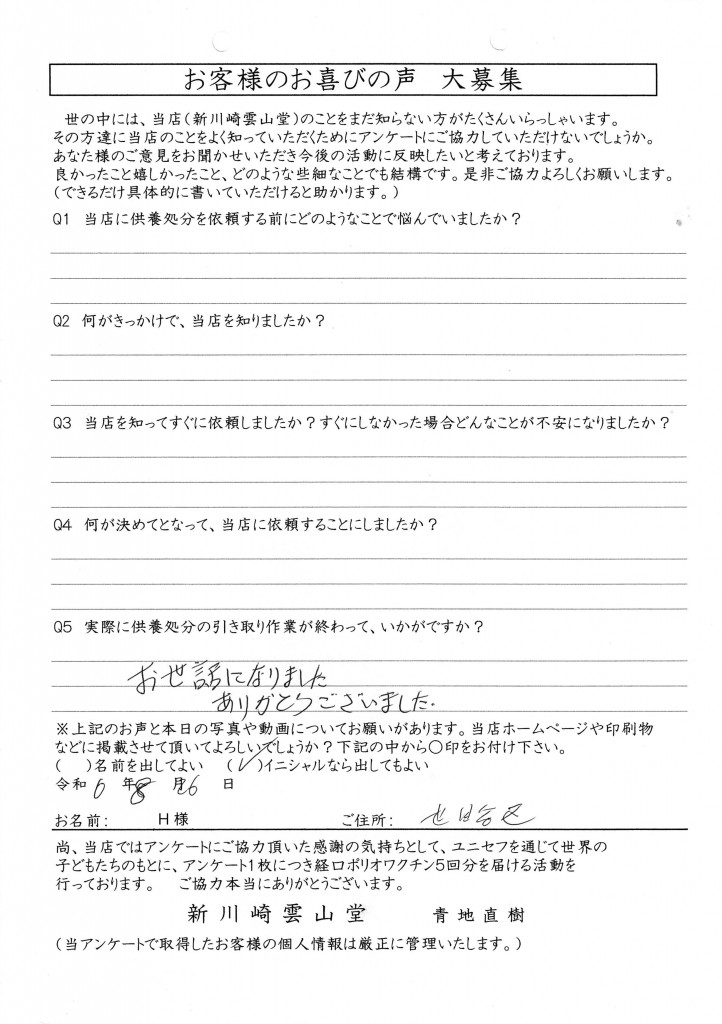 お客様のお喜びの声 大募集
世の中には、当店(新川崎雲山堂)のことをまだ知らない方がたくさんいらっしゃいます。
その方達に当店のことをよく知っていただくためにアンケートにご協力していただけないでしょうか。
あなた様のご意見をお聞かせいただき今後の活動に反映したいと考えております。
良かったこと嬉しかったこと、どのような些細なことでも結構です。是非ご協力よろしくお願いします。
(できるだけ具体的に書いていただけると助かります。)
Q1 当店に供養処分を依頼する前にどのようなことで悩んでいましたか?
Q2 何がきっかけで、当店を知りましたか?
Q3 当店を知ってすぐに依頼しましたか?すぐにしなかった場合どんなことが不安になりましたか?
Q4 何が決めてとなって、当店に依頼することにしましたか?
Q5 実際に供養処分の引き取り作業が終わって、いかがですか?
お世話になりました
ありがとうございました.
※上記のお声と本日の写真や動画についてお願いがあります。当店ホームページや印刷物
などに掲載させて頂いてよろしいでしょうか?下記の中から○印をお付け下さい。
( )名前を出してよい (✓)イニシャルなら出してもよい
令和 6 年 8 月 日
お名前: H様 ご住所: 世田谷区
尚、当店ではアンケートにご協力頂いた感謝の気持ちとして、ユニセフを通じて世界の
子どもたちのもとに、アンケート1枚につき経口ポリオワクチン5回分を届ける活動を
行っております。 ご協力本当にありがとうございます。
新川崎雲山堂 青地直樹
(当アンケートで取得したお客様の個人情報は厳正に管理いたします。)